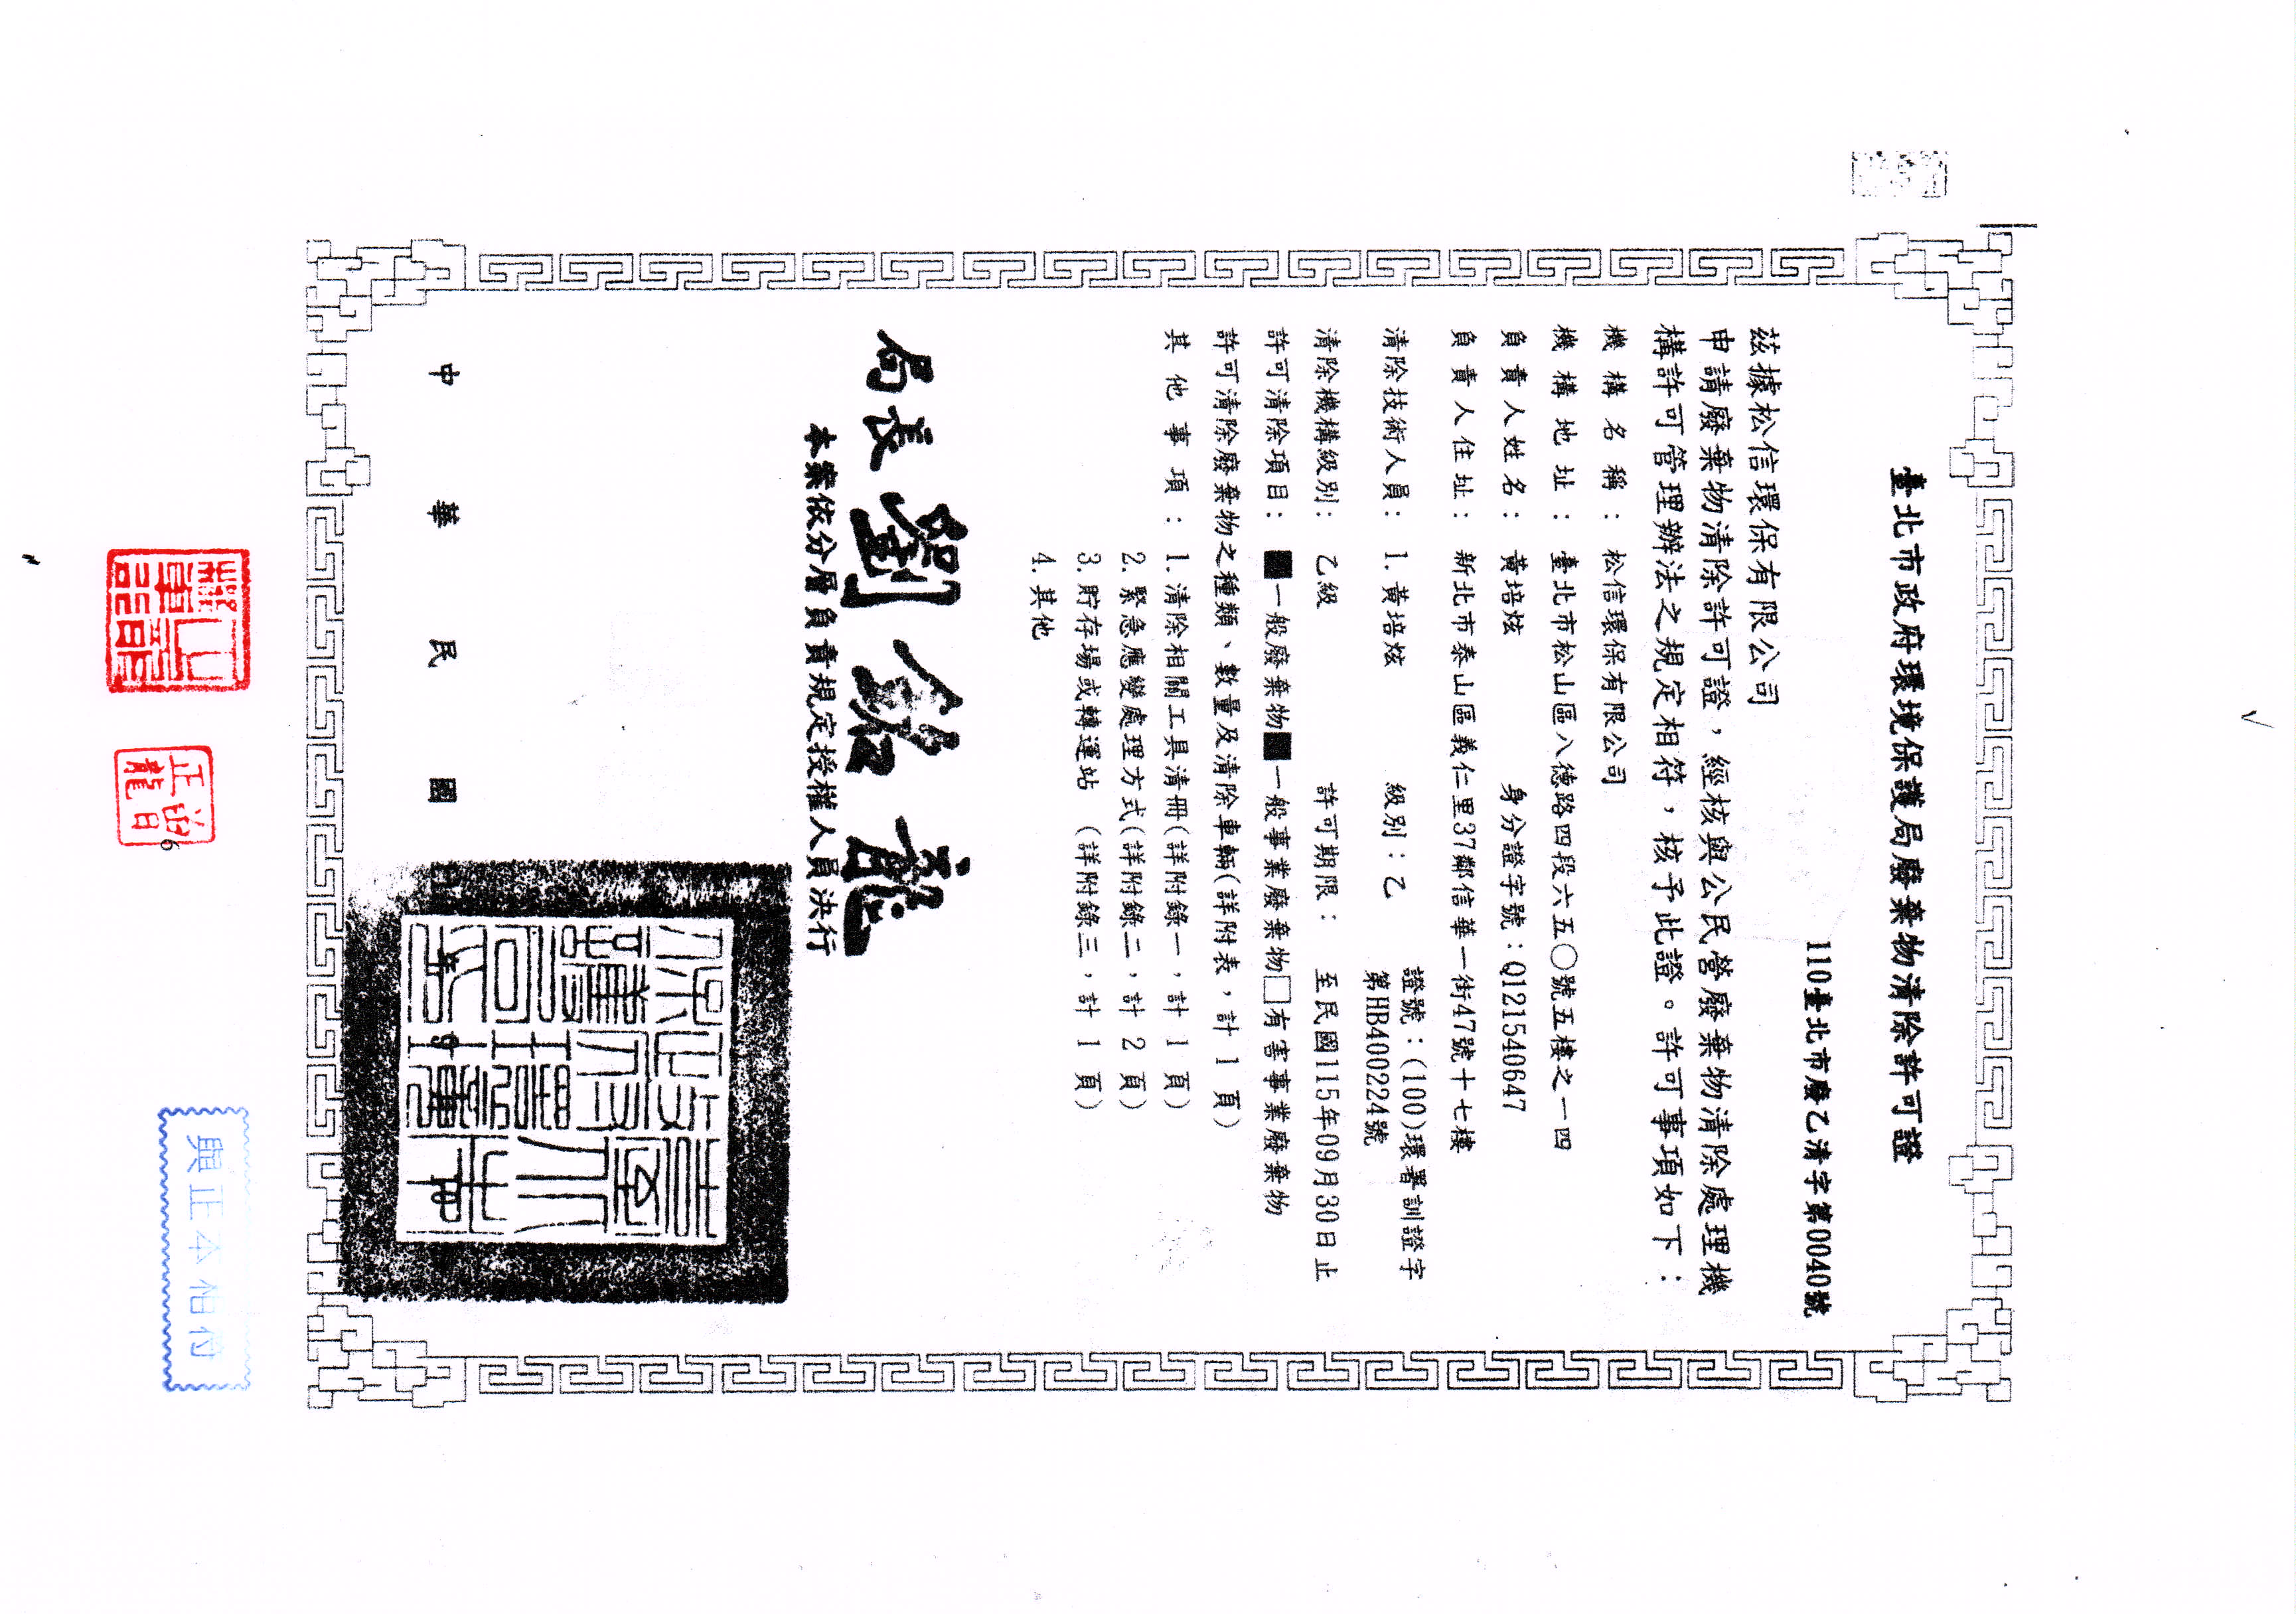 臺北市政府環境保護局廢棄物清除許可證
110臺北市廢乙清字第0040號
茲據松信環保有限公司
申請廢棄物清除許可證，經核與公民營廢棄物清除處理機
構許可管理辦法之規定相符，核予此證。許可事項如下：
機構名稱：松信環保有限公司
機構地址：臺北市松山區八德路四段六五○號五樓之一四
負責人姓名：黃培炫 身分證字號：Q121540647
負責人住址：新北市泰山區義仁里37鄰信華一街47號十七樓
清除技術人員：1.黃培炫 級別：乙 證號：(100)環署訓證字
第HB400224號
清除機構級別：乙級 許可期限： 至民國115年09月30日止
許可清除項目：■一般廢棄物■一般事業廢棄物□有害事業廢棄物
許可清除廢棄物之種類、數量及清除車輛(詳附表，計 1 頁)
其他事項：1.清除相關工具清冊(詳附錄一，計 1 頁)
2.緊急應變處理方式(詳附錄二，計 2 頁)
3.貯存場或轉運站 (詳附錄三，計 1 頁)
4.其他
局長 劉銘龍
本案依分層負責規定授權人員決行
中華民國 年 9 月
與正本相符